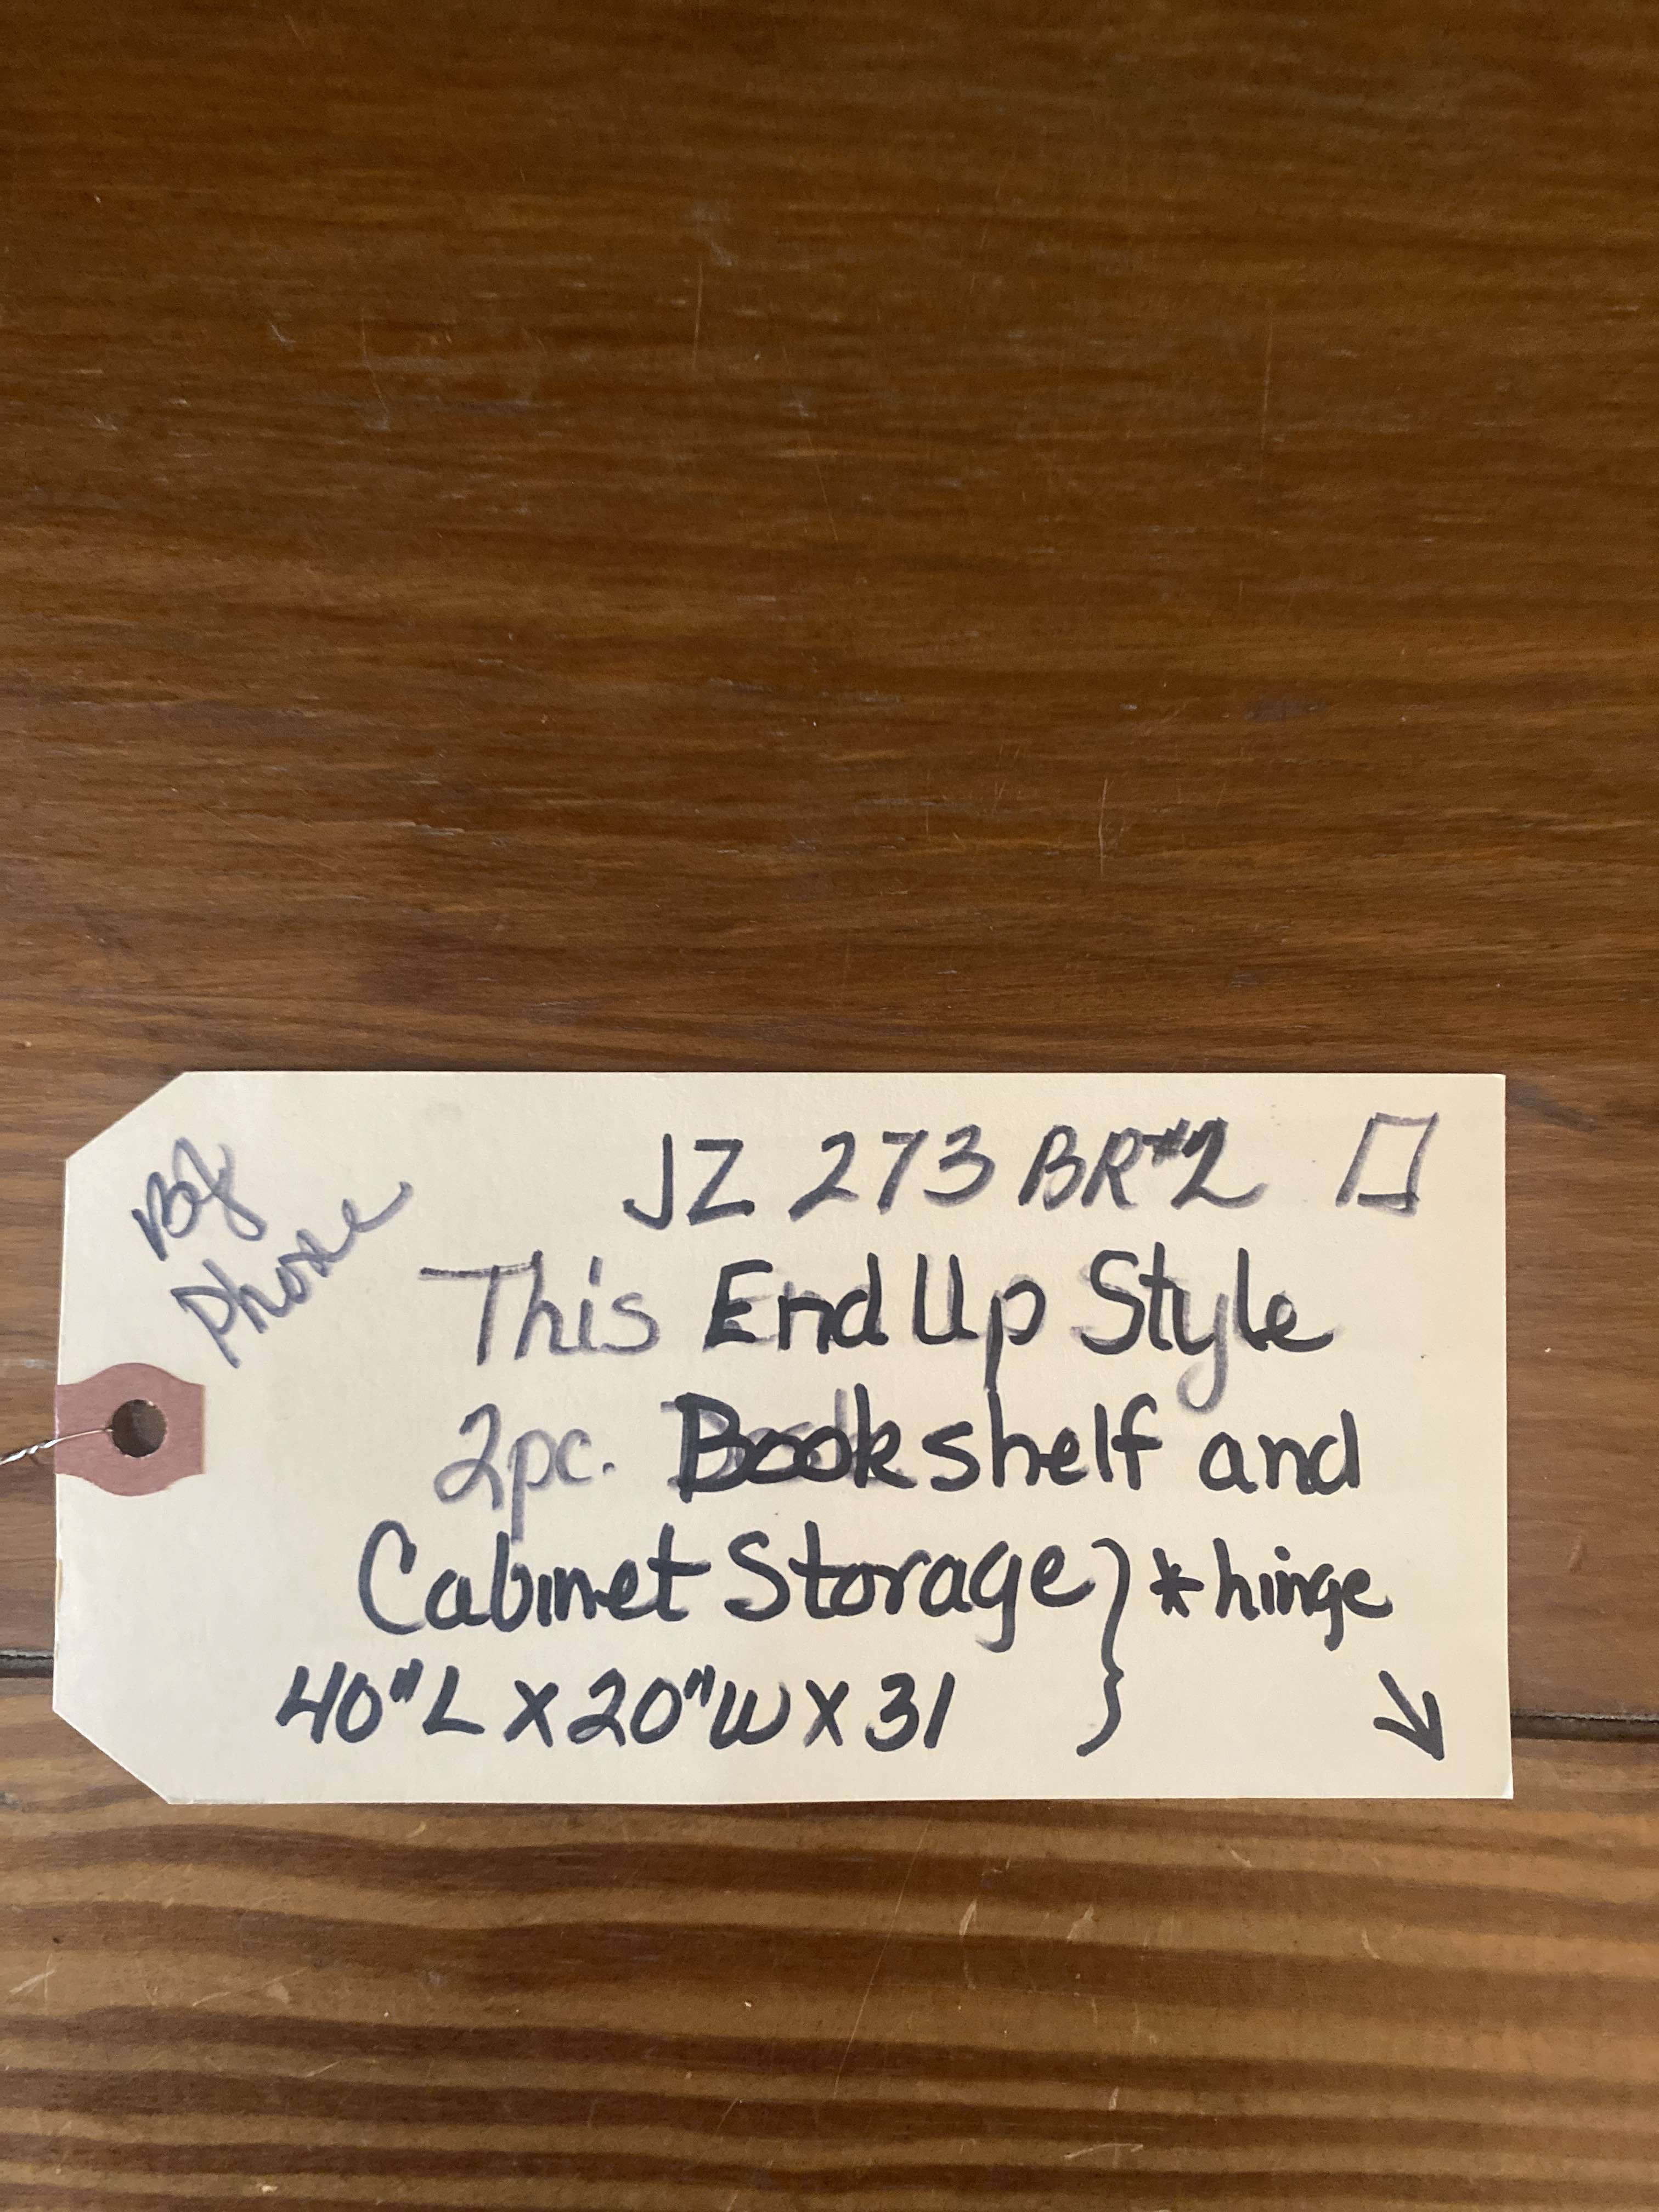 Phone
JZ 273 BR#2
This End Up Style
2pc. Bookshelf and
Cabinet Storage } *hinge
40"L X 20"W X 31